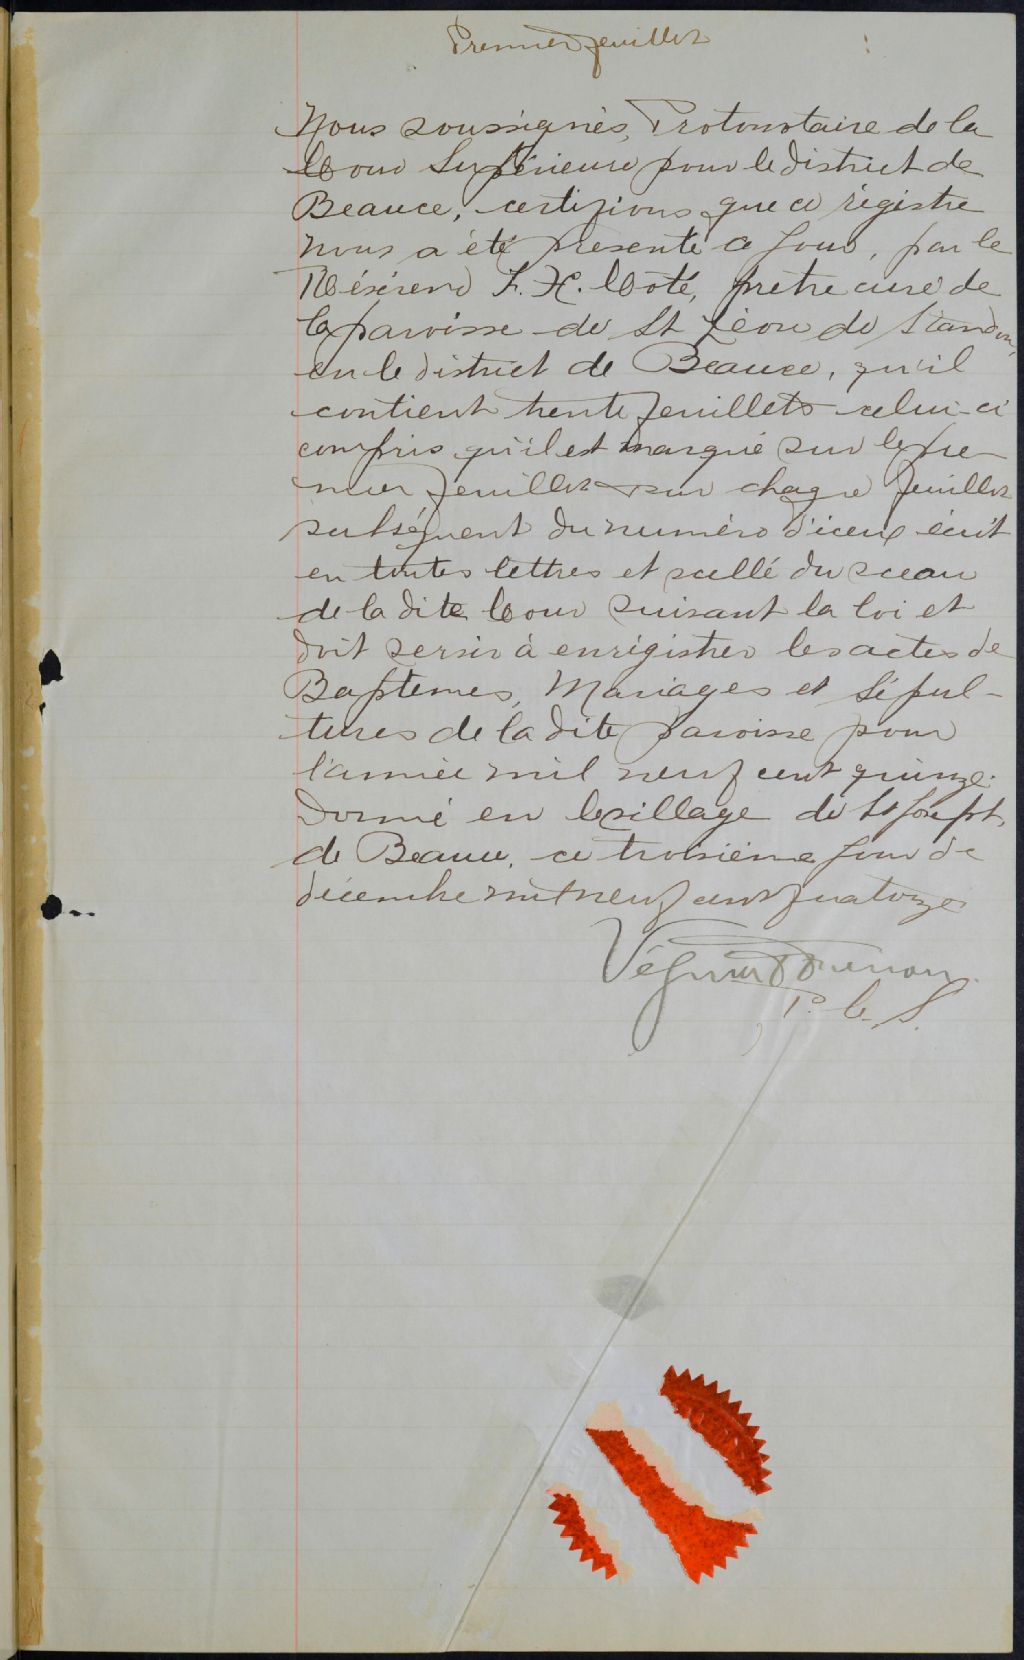 Premier feuillet
Nous soussignés, Protonotaire de la
Cour Supérieure pour le district de
Beauce, certifions que ce régistre
nous a été présenté ce jour, par le
Révérend F. X. Côté, prêtre curé de
la paroisse de St Léon de Standon,
en le district de Beauce, qu'il
contient trente feuillets celui-ci
compris qu'il est marqué sur le pre-
mier feuillet et sur chaque feuillet
subséquent du numéro d'iceux écrit
en toutes lettres et scellé du sceau
de la dite Cour suivant la loi et
doit servir à enrégistrer les actes de
Baptemes, Mariages et Sépul-
tures de la dite paroisse pour
l'année mil neuf cent quinze.
Donné en le village de St Joseph
de Beauce, ce troisième jour de
décembre mil neuf cent quatorze
P. C. S.